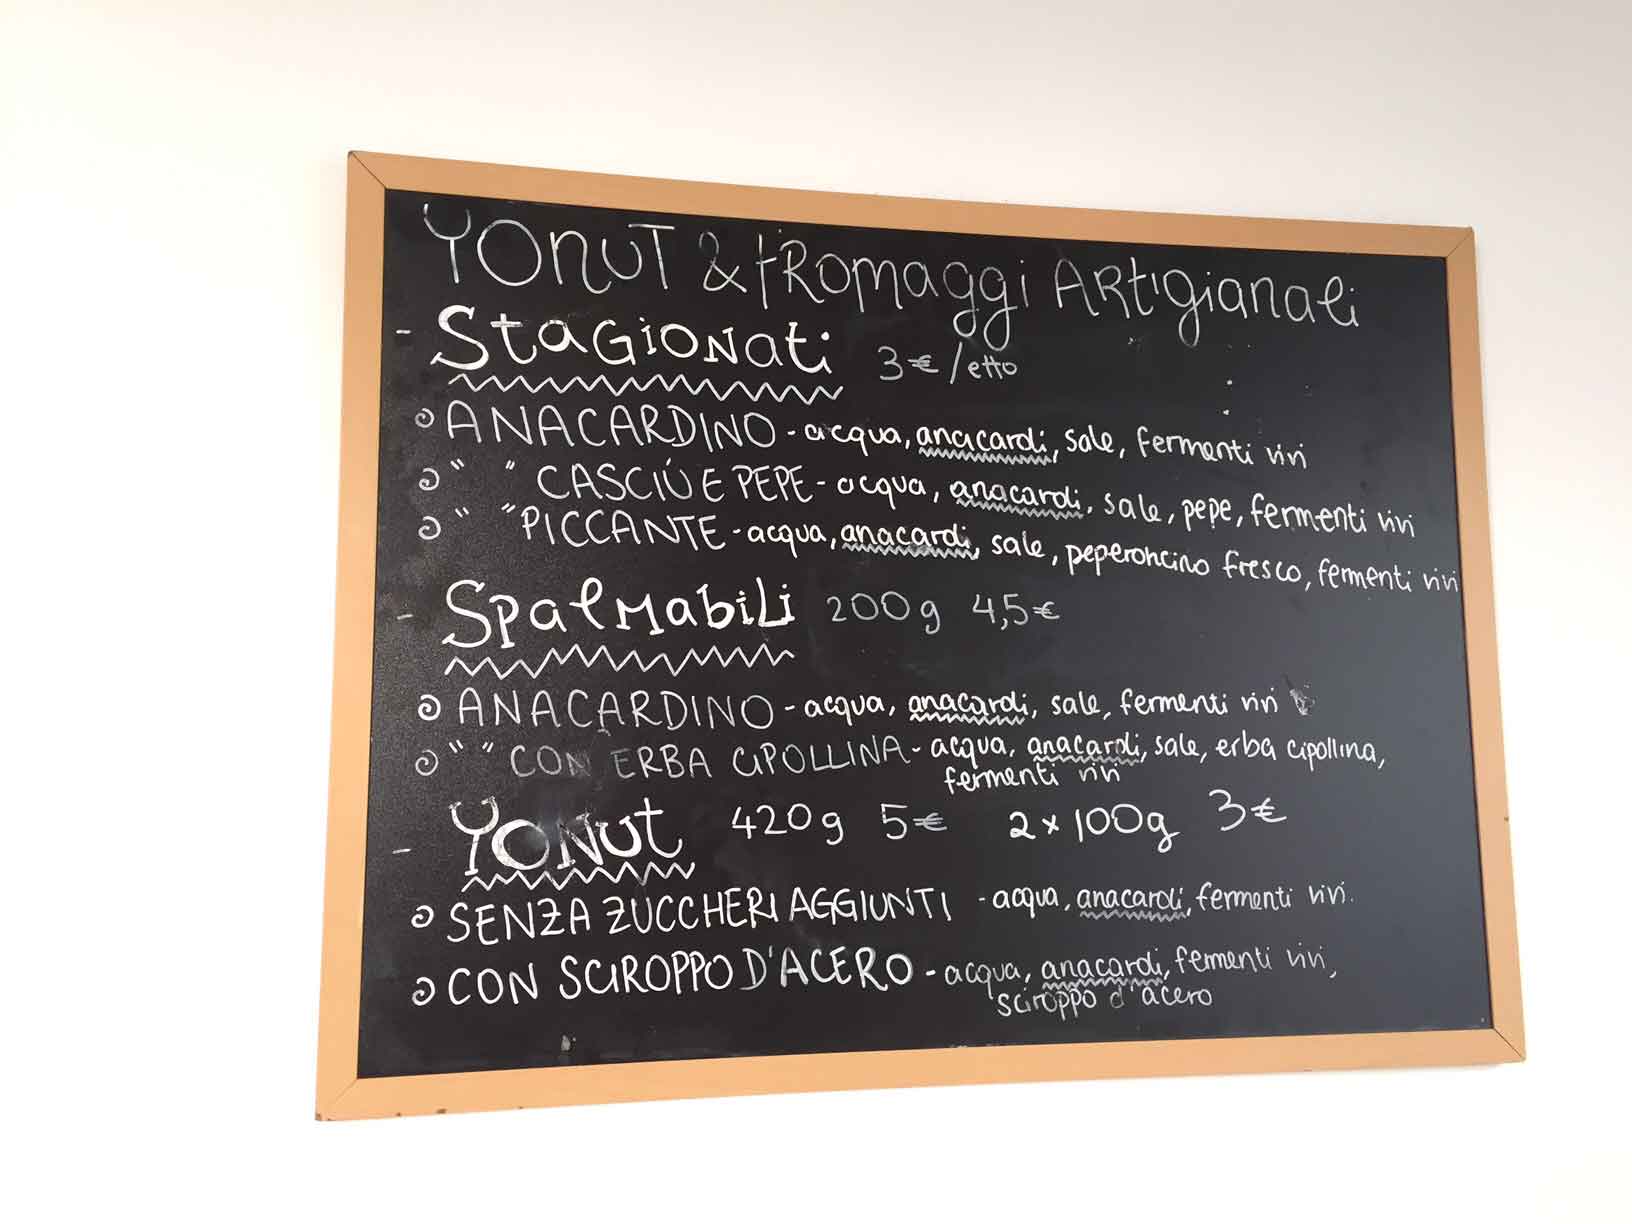 YONUT & FROMAGGI ARTIGIANALI
- STAGIONATI 3€/etto
ANACARDINO - acqua, anacardi, sale, fermenti vivi
" " CASCIÙ E PEPE - acqua, anacardi, sale, pepe, fermenti vivi
" " PICCANTE - acqua, anacardi, sale, peperoncino fresco, fermenti vivi
- SPALMABILI 200g 4,5€
ANACARDINO - acqua, anacardi, sale, fermenti vivi
" " CON ERBA CIPOLLINA - acqua, anacardi, sale, erba cipollina,
fermenti vivi
- YONUT 420g 5€ 2 x 100g 3€
SENZA ZUCCHERI AGGIUNTI - acqua, anacardi, fermenti vivi.
CON SCIROPPO D'ACERO - acqua, anacardi, fermenti vivi,
sciroppo d'acero